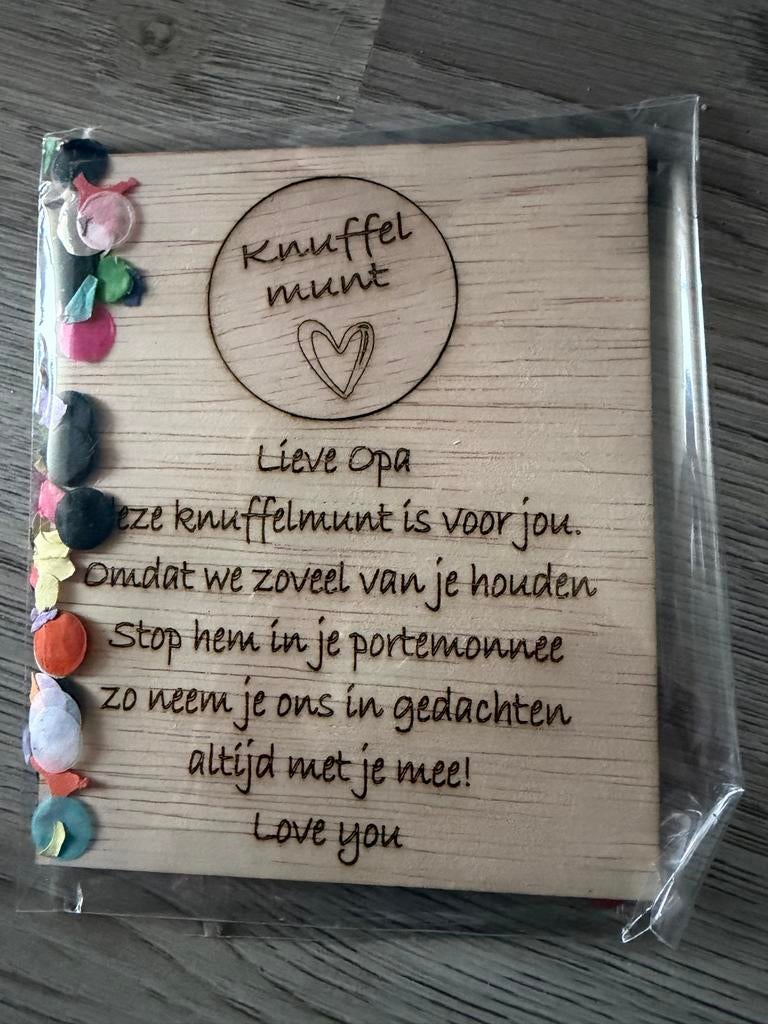 Knuffel
munt
Lieve Opa
eze knuffelmunt is voor jou.
Omdat we zoveel van je houden
Stop hem in je portemonnee
zo neem je ons in gedachten
altijd met je mee!
Love you